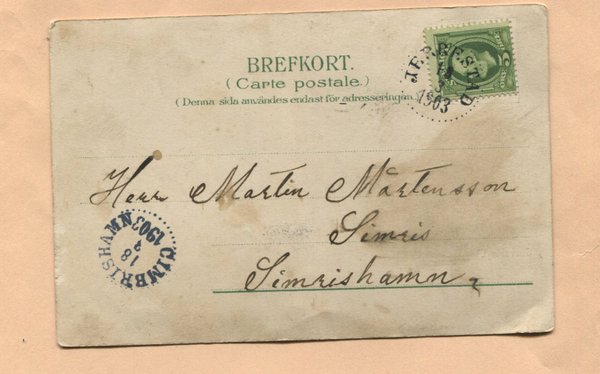 BREFKORT.
(Carte postale.)
(Denna sida användes endast för adresseringen.)
JERRESTAD
1903
Herr Martin Mårtensson
Simris
Simrishamn
CIMBRISHAMN
18
9
1903